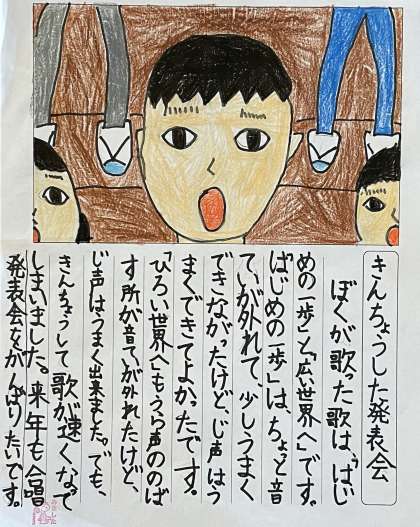 きんちょうした発表会
ぼくが歌った歌は、「はじ
めの一歩」と「広い世界へ」です。
「はじめの一歩」は、ちょっと音
ていが外れて、少しうまく
できなかったけど、じ声はう
まくできてよかったです。
「ひろい世界へ」もうら声ののば
す所が音ていが外れたけど、
じ声はうまく出来ました。でも、
きんちょうして歌が速くなって
しまいました。来年も合唱
発表会をがんばりたいです。